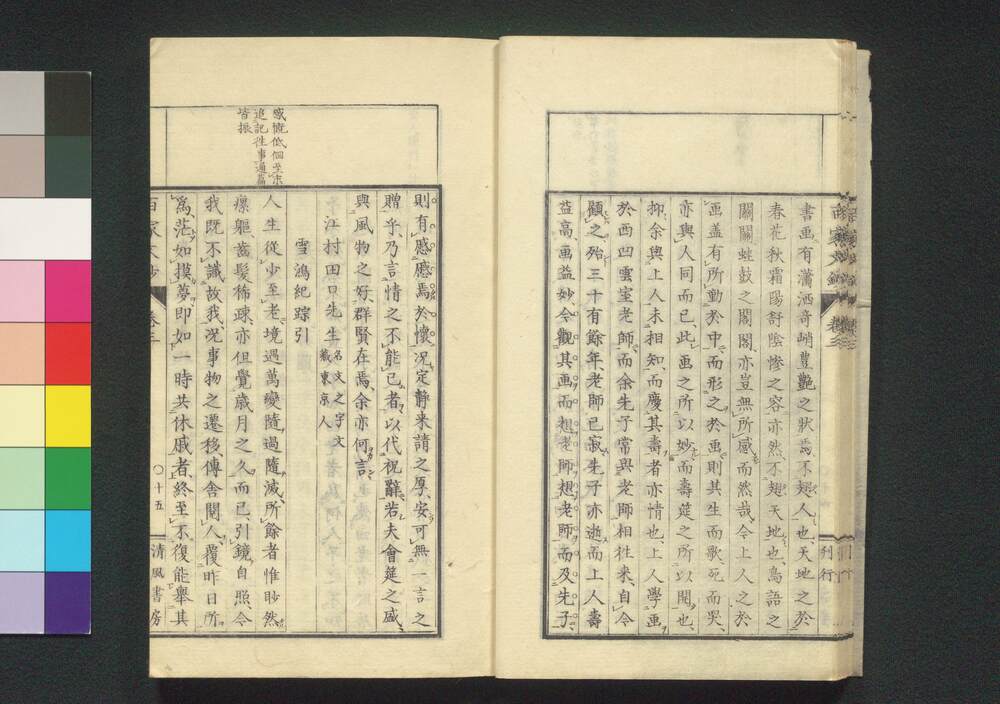 書画有瀟洒奇峭豊艷之狀焉不翅人也天地之於
春花秋霜陽舒陰慘之容亦然不翅天地也鳥語之
關關蛙鼓之閣閣亦豈無所感而然哉今上人之於
画盖有所動於中而形之於画則其生而歌死而哭
亦與人同而已此画之所以妙而壽筵之所以開也
抑余與上人未相知而慶其壽者亦情也上人學画
於西凹雲室老師而余先子常與老師相徃来自今
顧之殆三十有餘年老師已寂先子亦逝而上人壽
益高画益妙今觀其画而想老師想老師而及先子
刊行
則有感慝焉於懷况定靜来請之厚安可無一言之
贈乎乃言情之不能已者以代祝辭若夫會筵之盛
與風物之好群賢在焉余亦何言
江村田口先生 名文之字文
藏東京人
雪鴻紀踪引
感慨低佪至末
追記徃事通篇
皆振
人生從少至老境遇萬變隨過隨滅所餘者惟眇然
癯軀齒髮稀疎亦但覺歳月之久而已引鏡自照今
我既不識故我况事物之遷移傳舍閱人覆昨日所
爲茫如摸夢即如一時共休戚者終至不復能舉其
百家文鈔 卷三 〇十五 清風書房